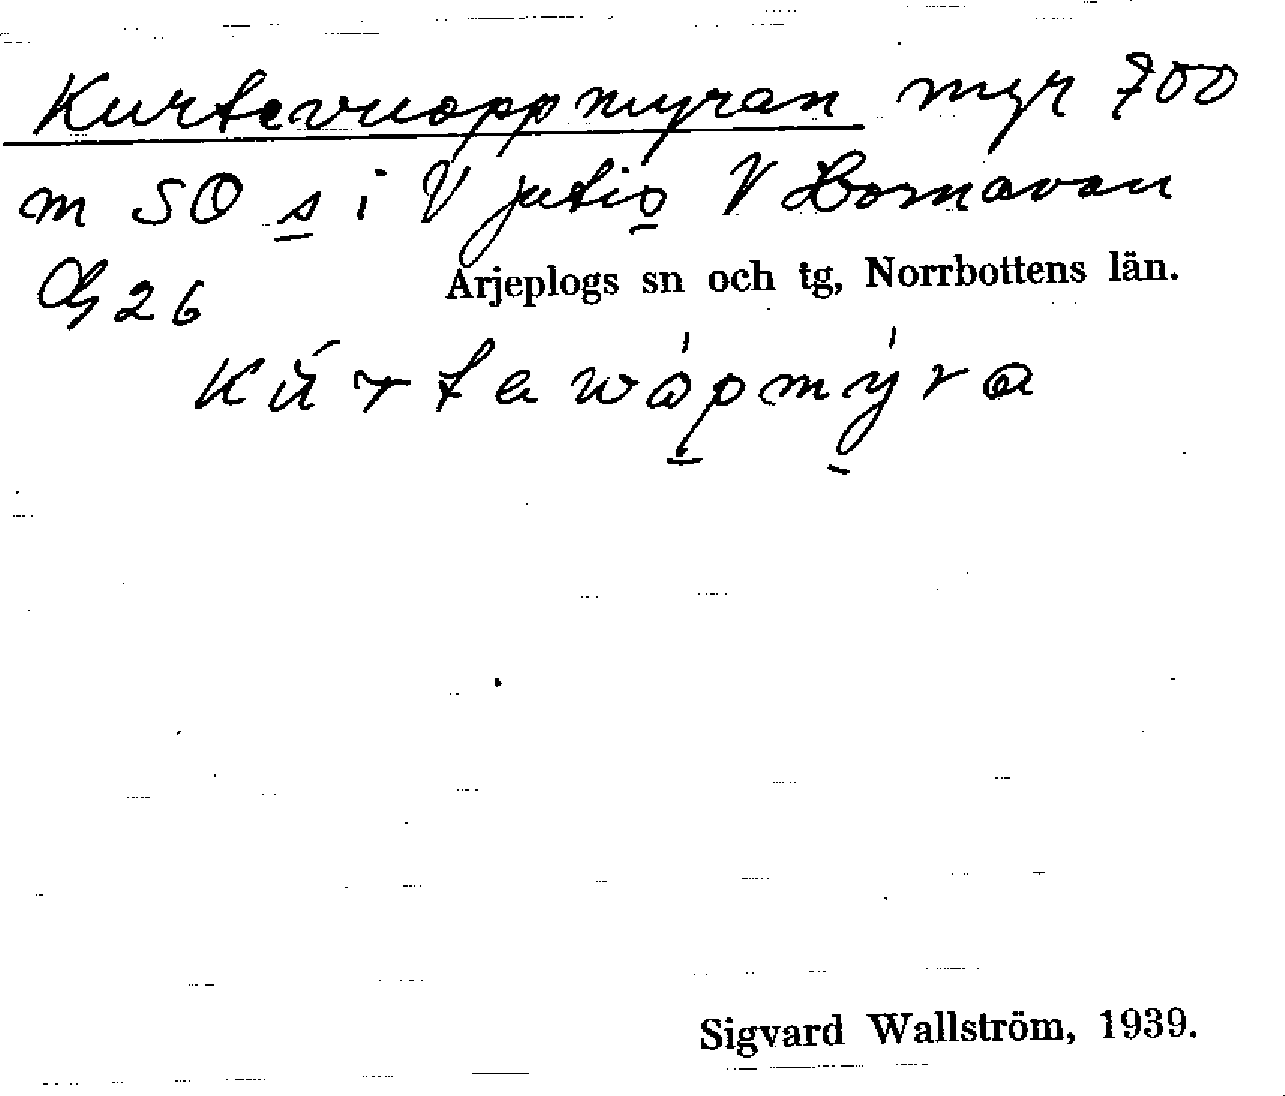 Kurtavuoppmyran myr 700
m SO s i V Jutis V Hornavan
Arjeplogs sn och tg, Norrbottens län.
26
Sigvard Wallström, 1939.